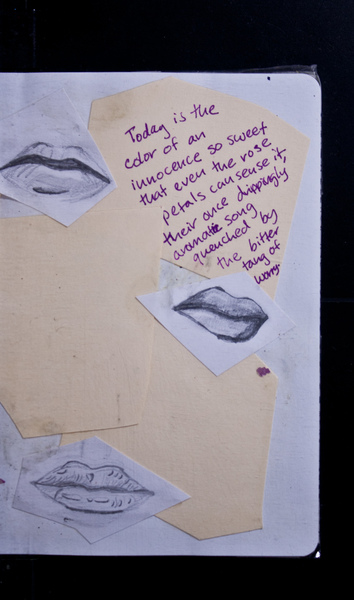 Today is the
color of an
innocence so sweet
that even the rose
petals can sense it,
their once drippingly
aromatic song
quenched by
the bitter
tang of
worry.